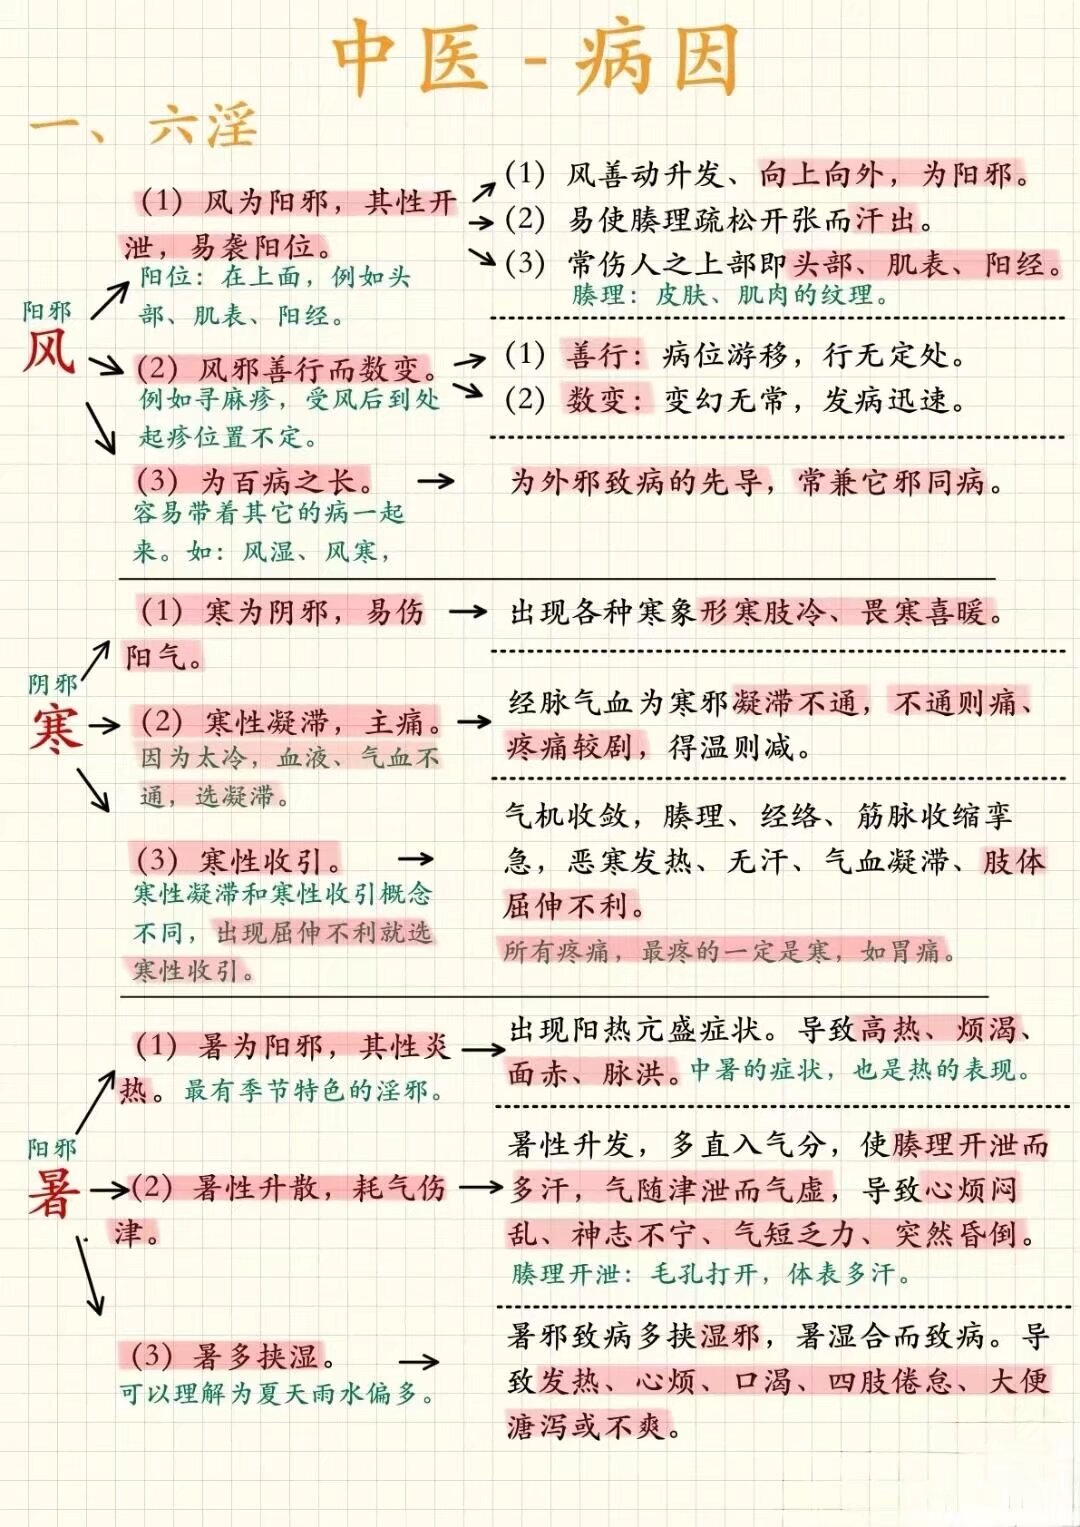 中医-病因
一、六淫
(1) 风为阳邪，其性开
泄，易袭阳位。
阳位：在上面，例如头
部、肌表、阳经。
(1) 风善动升发、向上向外，为阳邪。
(2) 易使腠理疏松开张而汗出。
(3) 常伤人之上部即头部、肌表、阳经。
腠理：皮肤、肌肉的纹理。
阳邪
风
(2) 风邪善行而数变。
例如寻麻疹，受风后到处
起疹位置不定。
(1) 善行：病位游移，行无定处。
(2) 数变：变幻无常，发病迅速。
(3) 为百病之长。
容易带着其它的病一起
来。如：风湿、风寒，
为外邪致病的先导，常兼它邪同病。
(1) 寒为阴邪，易伤
阳气。
出现各种寒象形寒肢冷、畏寒喜暖。
阴邪
寒
(2) 寒性凝滞，主痛。
因为太冷，血液、气血不
通，选凝滞。
经脉气血为寒邪凝滞不通，不通则痛、
疼痛较剧，得温则减。
(3) 寒性收引。
寒性凝滞和寒性收引概念
不同，出现屈伸不利就选
寒性收引。
气机收敛，腠理、经络、筋脉收缩挛
急，恶寒发热、无汗、气血凝滞、肢体
屈伸不利。
所有疼痛，最疼的一定是寒，如胃痛。
(1) 暑为阳邪，其性炎
热。最有季节特色的淫邪。
出现阳热亢盛症状。导致高热、烦渴、
面赤、脉洪。中暑的症状，也是热的表现。
阳邪
暑
(2) 暑性升散，耗气伤
津。
暑性升发，多直入气分，使腠理开泄而
多汗，气随津泄而气虚，导致心烦闷
乱、神志不宁、气短乏力、突然昏倒。
腠理开泄：毛孔打开，体表多汗。
(3) 暑多挟湿。
可以理解为夏天雨水偏多。
暑邪致病多挟湿邪，暑湿合而致病。导
致发热、心烦、口渴、四肢倦怠、大便
溏泻或不爽。